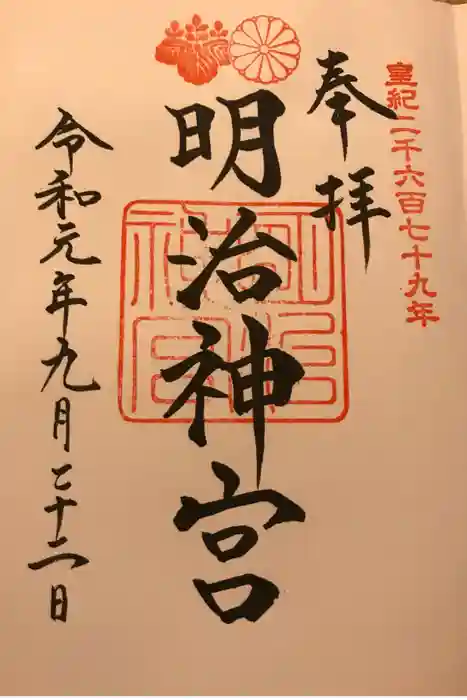 皇紀二千六百七十九年
奉拝
明治神宮
令和元年九月二十二日